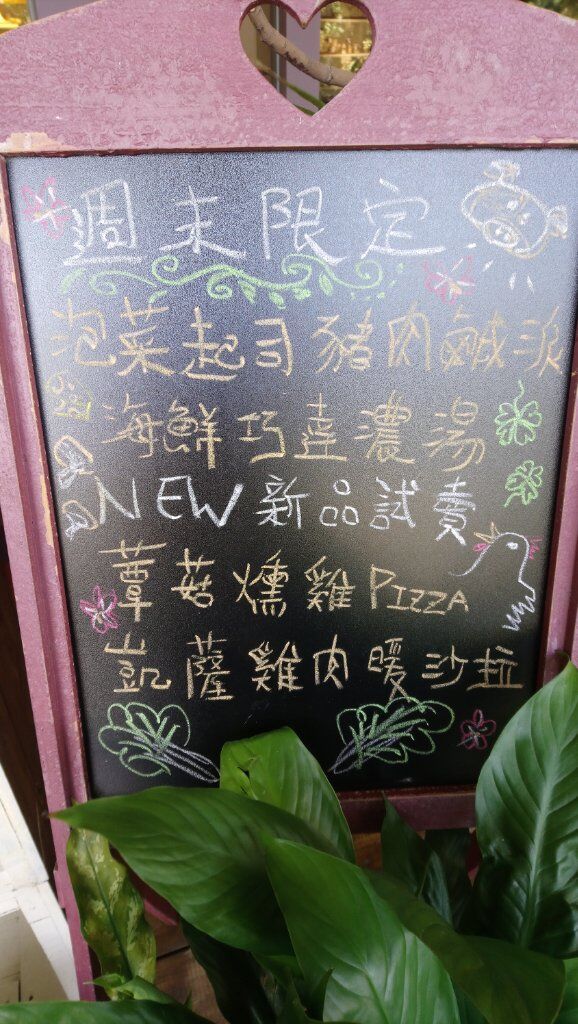 週末限定
泡菜起司豬肉鹹派
海鮮巧達濃湯
NEW新品試賣
蕈菇燻雞PIZZA
凱薩雞肉暖沙拉